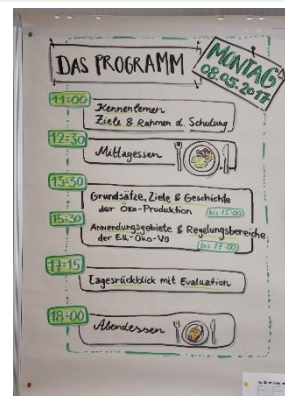 DAS PROGRAMM
MONTAG
08.05.2017
11:00
Kennenlernen
Ziele & Rahmen d. Schulung
12:30
Mittagessen
13:30
Grundsätze, Ziele & Geschichte
der Öko-Produktion
bis 15:00
15:30
Anwendungsgebiete & Regelungsbereiche
der EU-Öko-VO
bis 17:00
17:15
Tagesrückblick mit Evaluation
18:00
Abendessen